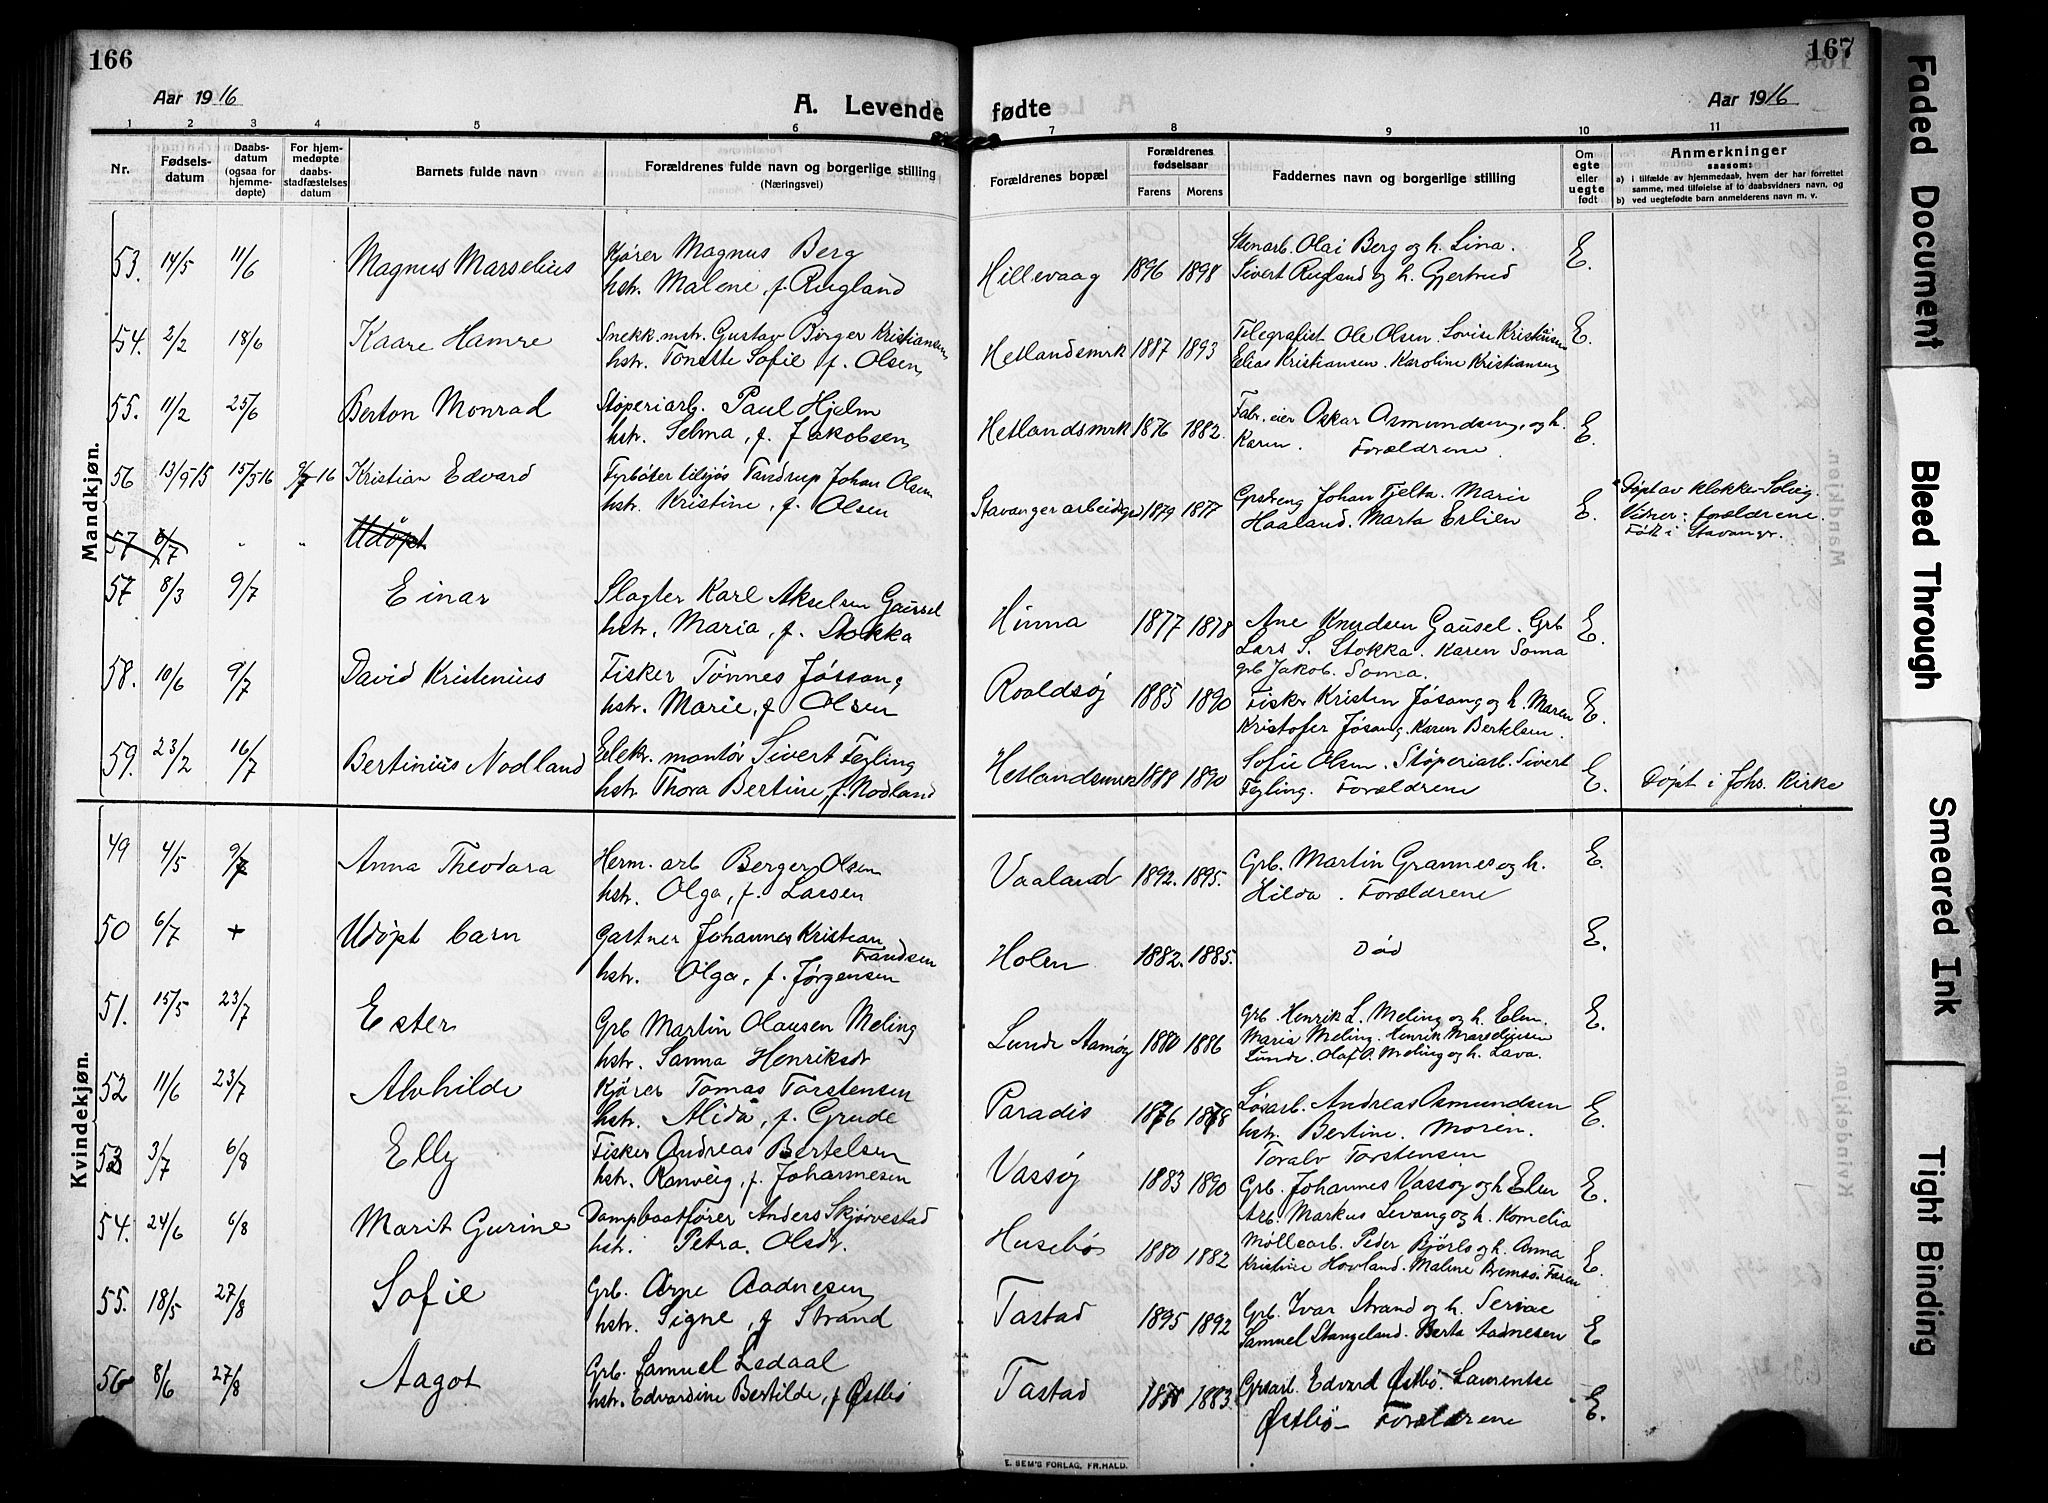 166
Aar 1916
A. Levende
1 2 3 4 5 6
Nr.
Fødsels-
datum
Daabs-
datum
(ogsaa for
hjemme-
døpte)
For hjem-
medøpte
daabs-
stadfæstelses
datum
Barnets fulde navn
Forældrenes fulde navn og borgerlige stilling
(Næringsvei)
Mandkjøn.
53. 14/5 11/6 Magnus Marselius Kjører Magnus Berg
hstr. Malene, f. Rugland
54. 2/2 18/6 Kaare Hamre Snekk.mstr. Gustav Birger Kristiansen
hstr. Tonette Sofie f. Olsen
55. 11/2 25/6 Berton Monrad Støperiarb. Paul Hjelm
hstr. Selma, f. Jakobsen
56 13/9-15 15/5-16 9/7-16 Kristian Edvard Fyrbøter tilsjøs Tandrup Johan Olsen
hstr. Kristine, f. Olsen
57 6/7 " " Udøpt
57 8/3 9/7 Einar Slagter Karl Akselsen Gausel
hstr. Maria, f. Stokka
58. 10/6 9/7 David Kristenius Fisker Tønnes Jøssang
hstr. Marie, f. Olsen
59. 23/2 16/7 Bertinius Nodland Elekr. montør Sivert Fegling
hstr. Thora Bertine, f. Nodland
Kvindekjøn.
49 4/5 9/7 Anna Theodora Herm. arb Berger Olsen
hstr. Olga, f. Larsen
50 6/7 + Udøpt barn Gartner Johannes Kristian
Frandsen
hstr. Olga, f. Jørgensen
51. 15/5 23/7 Ester Grb Martin Olausen Meling
hstr. Sanna Henriksdr
52 11/6 23/7 Alvhilde Kjører Tomas Torstensen
hstr. Alida, f. Grude
53 3/7 6/8 Elly Fisker Andreas Bertelsen
hstr. Ranveig, f. Johannesen
54. 24/6 6/8 Marit Gurine Dampbaatfører Anders Skjørvestad
hstr. Petra. Olsdr.
55. 18/5 27/8 Sofie Grb. Arne Aadnesen
hstr. Signe, f Strand
56 8/6 27/8 Aagot Grb. Samuel Ledaal
hstr. Edvardine Bertilde, f Østbø
167
Aar 1916
fødte
7 8 9 10 11
Forældrenes bopæl
Forældrenes
fødselsaar
Farens Morens
Faddernes navn og borgerlige stilling
Om
egte
eller
uegte
født
Anmerkninger
saasom:
a) i tilfælde av hjemmedaab, hvem der har forrettet
samme, med tilføielse af to daabsvidners navn, og
b) ved uegtefødte barn anmelderens navn m. v.
Stenarb. Olai Berg og h. Lina.
Hillevaag 1896 1898 Sivert Rugland og h. Gjertrud E.
Telegrafist Ole Olsen. Lovise Kristiansen
Hetlandsmrk 1887 1893 Elias Kristiansen. Karoline Kristiansen E.
Fabr. eier Oskar Osmundsen, og h.
Hetlandsmrk 1876 1882. Karen. Forældrene. E.
Johan Tjelta. Marie
Stavanger 1879 1877 Haaland. Marta Erlien E.
Døpt av klokker Solvig.
Vidner: forældrene.
Født i Stavangr.
Hinna 1877 1878 Ane Knudsen Gausel. Grb
Lars S. Stokka. Karen Soma E.
grb Jakob. Soma.
Roaldsøj 1885 1890 Fisker Kristen Jøsang og h. Maren
Kristofer Jøsang. Karen Bertelsen. E.
Hetlandsmrk 1888 1890 Sofie Olsen. Støperiarb. Sivert
Fegling. Forældrene E. Døpt i Johs. Kirke
Vaaland 1892. 1895. Grb. Martin Grannes og h.
Hilda. Forældrene E.
Holen 1882. 1885. Død E.
Grb. Henrik L. Meling og h. Elen.
Lunde Aamøy 1880 1886 Maria Meling. Henrik Marseliusen
Lunde. Olaf A. Meling og h. Lava. E.
Paradis 1876 1878 Løsarb. Andreas Osmundsen
hstr. Bertine. Moren. E.
Toralv Torstensen
Vassøy 1883 1890 Grb. Johannes Vassøy og h Elen E.
Arb. Markus Levang og h. Kornelia
Husebø 1880 1882 Møllearb. Peder Bjørls og h. Anna
Kristine Hovland. Malene Bremsø. Faren E.
Tastad 1895 1892 Grb. Ivar Strand og h. Serine
Samuel Stangeland. Berta Aadnesen E
Tastad 1878 1883. Grsarb. Edvard Østbø. Laurentse
Østbø Forældrene E.
E. SEM'S FORLAG, FR.HALD.
Faded Document
Bleed Through
Smeared Ink
Tight Binding